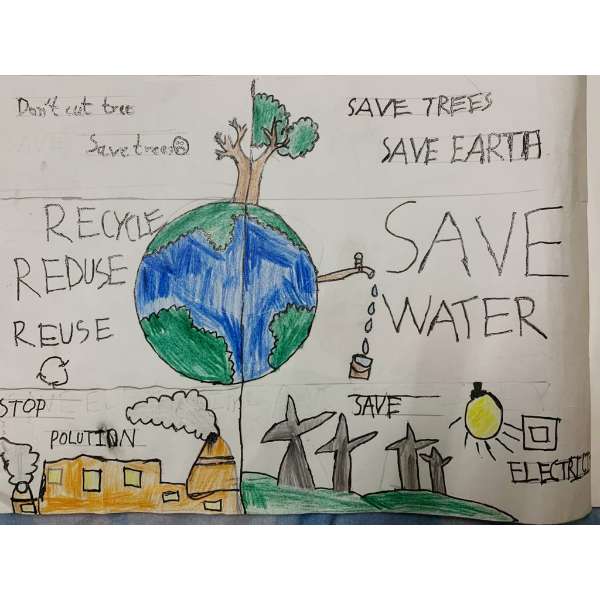 Don't cut tree
Save trees
SAVE TREES
SAVE EARTH
RECYCLE
REDUSE
REUSE
SAVE
WATER
STOP
POLUTION
SAVE
ELECTRIC